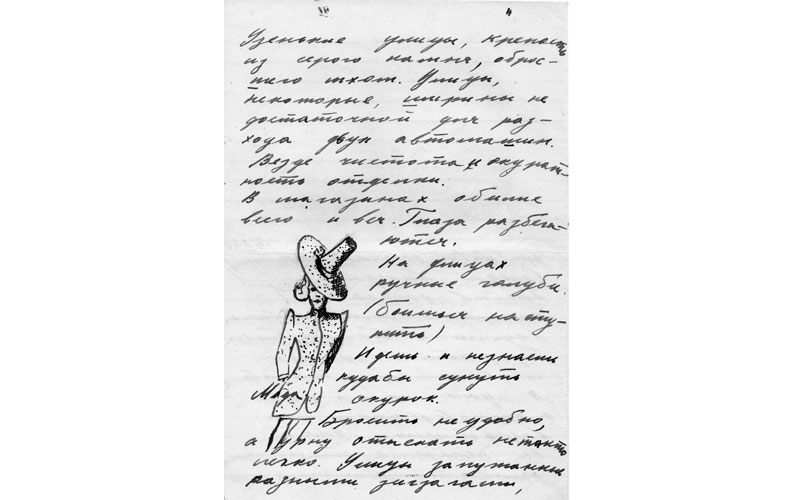 4
Узенькие улицы, крепость
из серого камня, оброс-
шего мхом. Улицы,
некоторые, ширины не
достаточной для раз-
хода двух автомашин.
Везде чистота и окурат-
ность отделки.
В магазинах обилие
всего и вся. Глаза разбега-
ются.
На улицах
ручные голуби.
(боишься насту-
пить)
Идешь и незнаешь
кудабы сунуть
окурок.
Мода
Бросить неудобно,
а урну отыскать не так то
легко. Улицы запутанные
разными зигзагами,